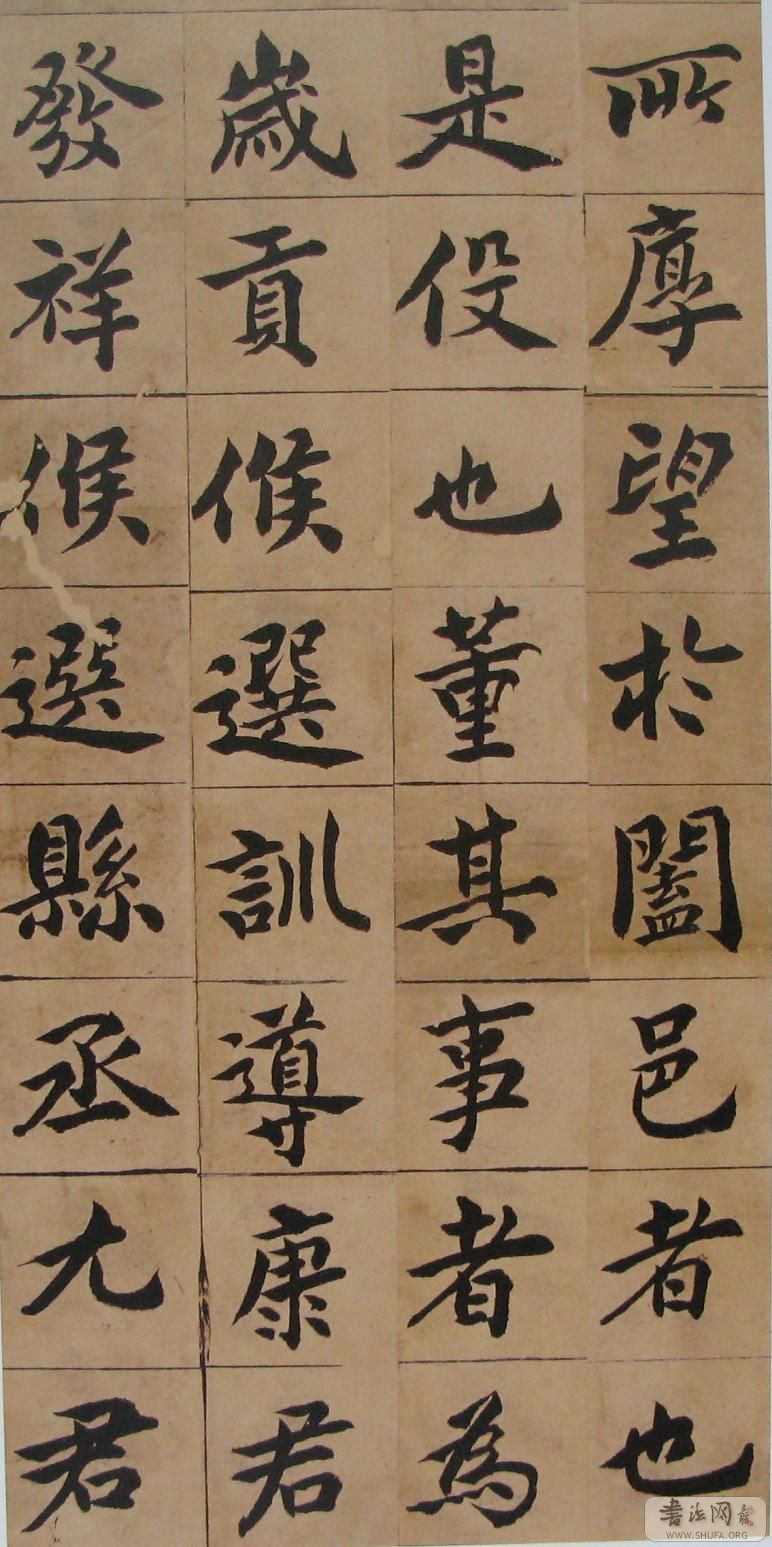 所厚望於闔邑者也
是役也董其事者為
歲貢候選訓導康君
發祥候選縣丞尤君
書法网
WWW.SHUFA.ORG